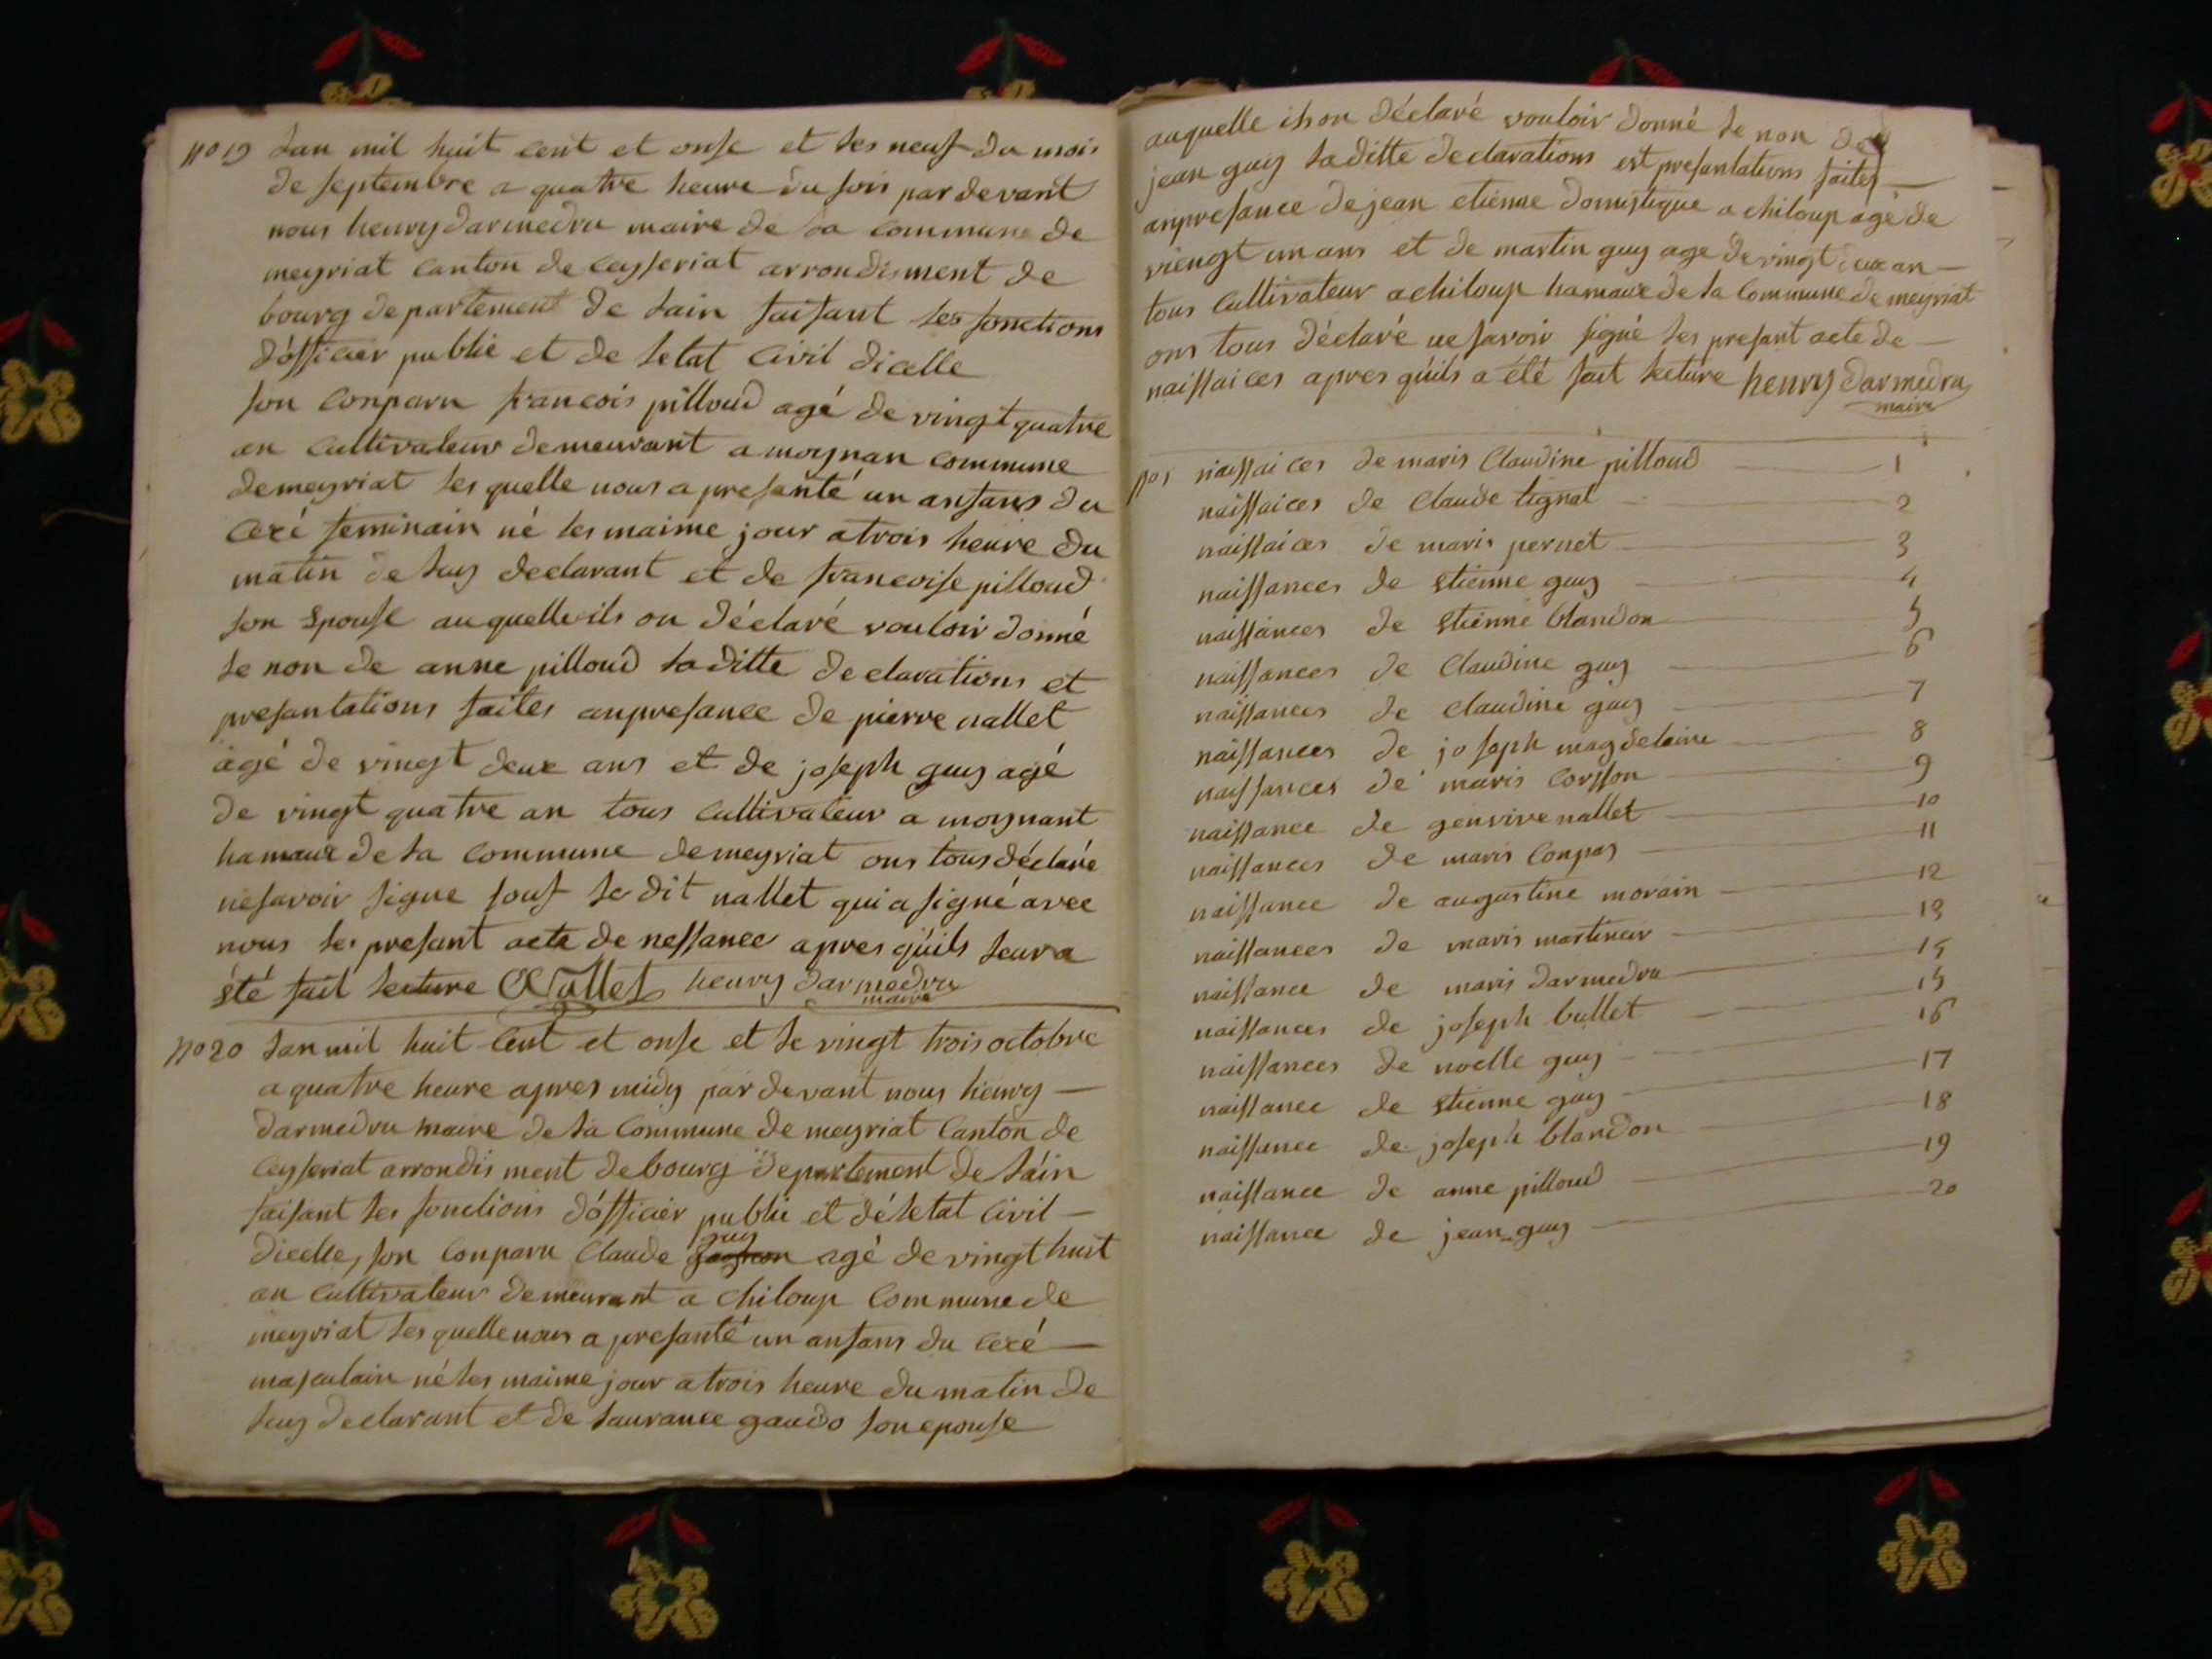 no 19 Lan mil huit cent et onse et les neuf du mois
de septembre a quatre heure du soir par devant
nous henry darmedru maire de la commune de
meyriat canton de ceyseriat arrondisment de
bourg departement de lain faisant les fonctions
d'officier public et de letat civil dicelle
son conparu francois pilloud agé de vingt quatre
an cultivateur demeurant a moynan commune
demeyriat lesquelle nous a presanté un anfans du
cexé feminain né les maime jour a trois heure du
matin de luy declarant et de francoise pilloud
son epouse auquelle ils on déclaré vouloir donné
le non de anne pilloud laditte declarations et
presantations faites anpresance de pierre nallet
agé de vingt deux ans et de joseph guy agé
de vingt quatre an tous cultivateur a moynant
hamaux de la commune demeyriat ons tous déclaré
nesavoir signe souf le dit nallet qui a signé avec
nous les presant acte de nessance apres quils leur a
été fait lecture Nallet henry darmedru
maire
no 20 Lan mil huit cent et onse et le vingt trois octobre
a quatre heure apres midy par devant nous henry
darmedru maire de la commune de meyriat canton de
ceyseriat arrondisment debourg departement de lain
faisant les fonctions d'officier public et dé letat civil
dicelle, son conparu claude guy agé de vingt huit
an cultivateur demeurant a chiloup commune de
meyriat lesquelle nous a presanté un anfans du cexé
masculain né les maime jour a trois heure du matin de
luy declarant et de laurance gaudo son epouse
auquelle ils on déclaré vouloir donné le non de
jean guy laditte declarations est presantations faites
anpresance de jean etienne domistique a chiloup agé de
viengt un ans et de martin guy age de vingt deux an
tous cultivateur a chiloup hamaux de la commune de meyriat
ons tous déclaré ne savoir signé les presant acte de
naissaices apres quils a été fait lecture henry darmedru
maire
no 1 naissaices de maris claudine pilloud 1
naissaices de claude tignat 2
naissaices de maris pernet 3
naissances de etienne guy 4
naissances de etienne blandon 5
naissances de claudine guy 6
naissances de claudine guy 7
naissances de joseph magdelaine 8
naissances de maris corsson 9
naissance de genvive nallet 10
naissances de maris conpas 11
naissance de augustine morain 12
naissances de maris martineur 13
naissance de maris darmedru 14
naissances de joseph bullet 15
naissances de noelle guy 16
naissance de etienne guy 17
naissance de joseph blandon 18
naissance de anne pilloud 19
naissance de jean guy 20